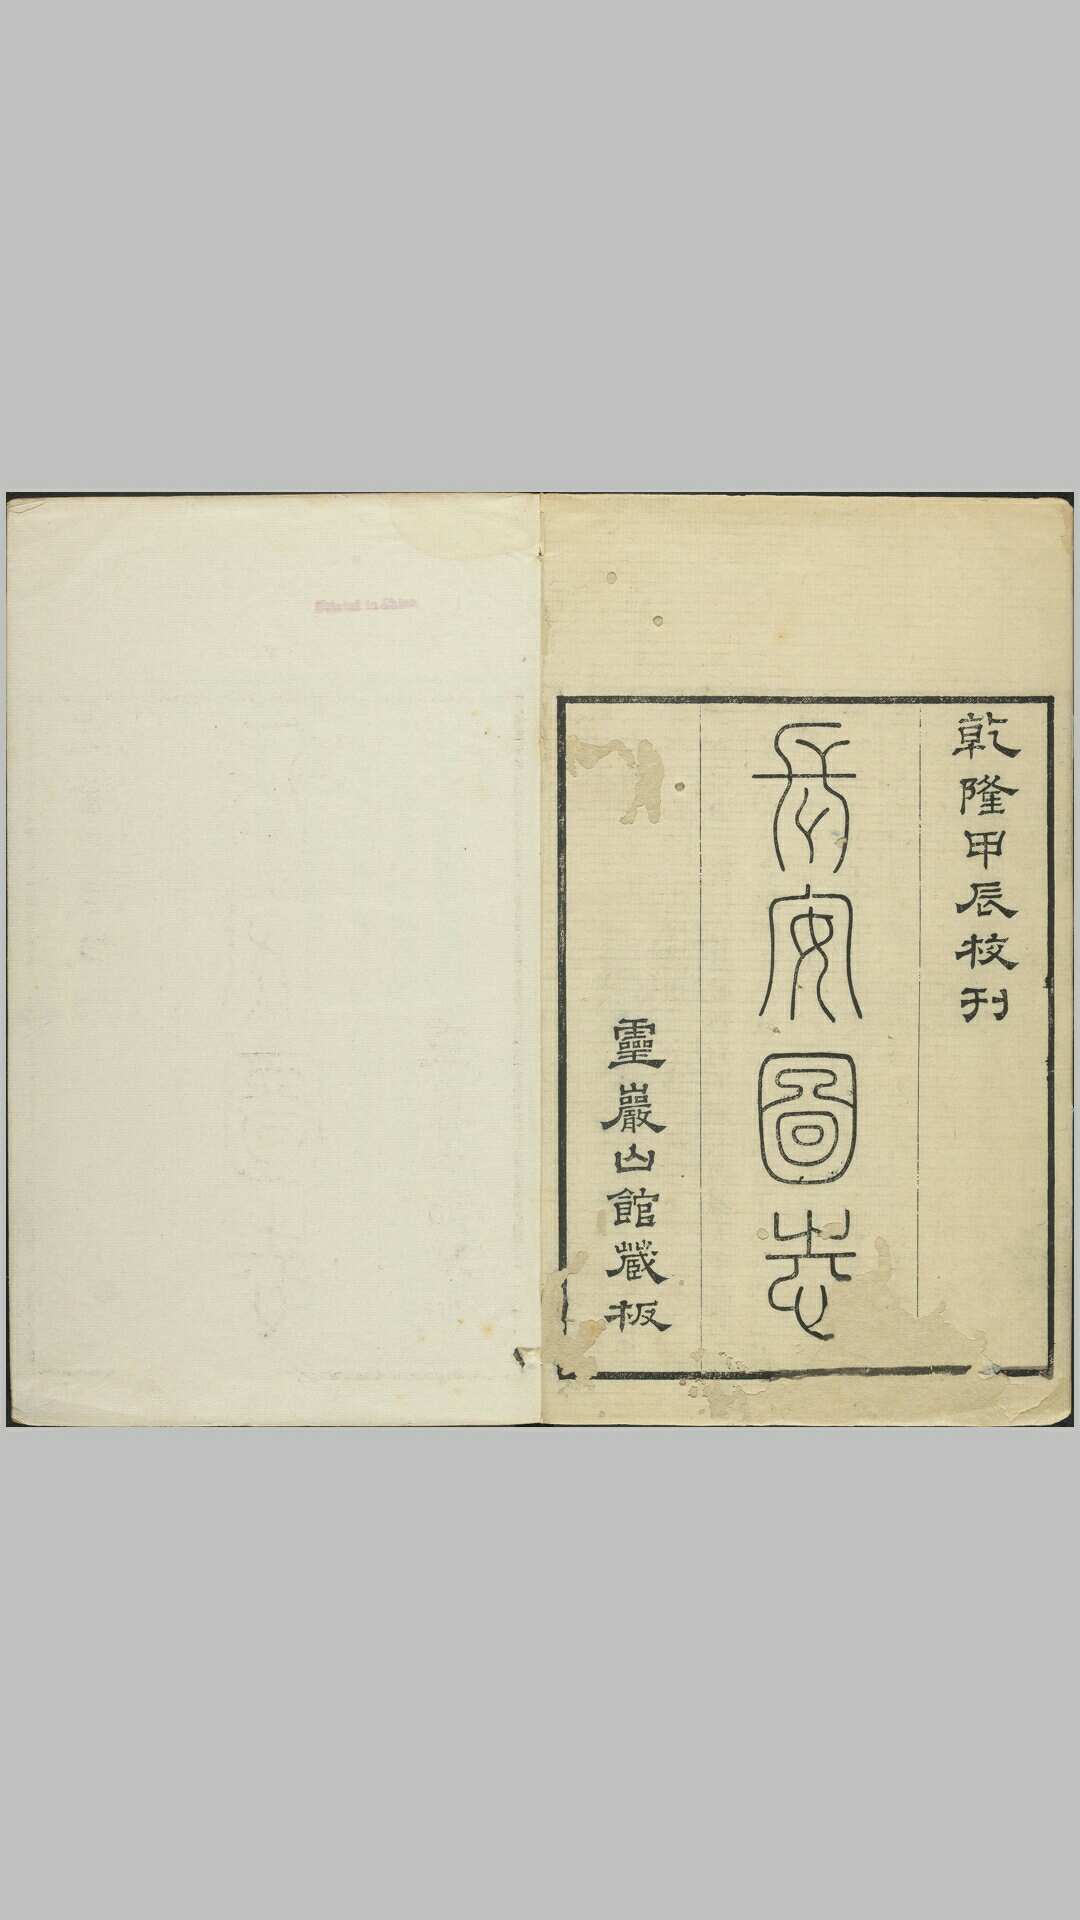 乾隆甲辰校刊
長安圖志
靈巖山館藏板
Printed in China